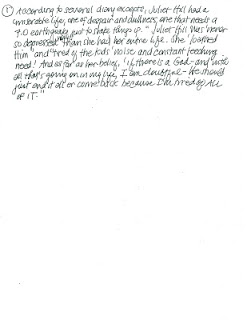 ① According to several diary excerpts, Juliet Hill had a
miserable life, one of despair and dullness, one that needs a
9.0 earthquake just to shake things up. " Juliet Hill was "never
so depressed" than she had her entire life. She "loathed
him" and "tired of the kids' noise and constant feeding
need! And as for her belief, "if there is a God - and with
all that's going on in my life, I am doubtful - He should
just end it all or come back because I'm tired of ALL
OF IT."